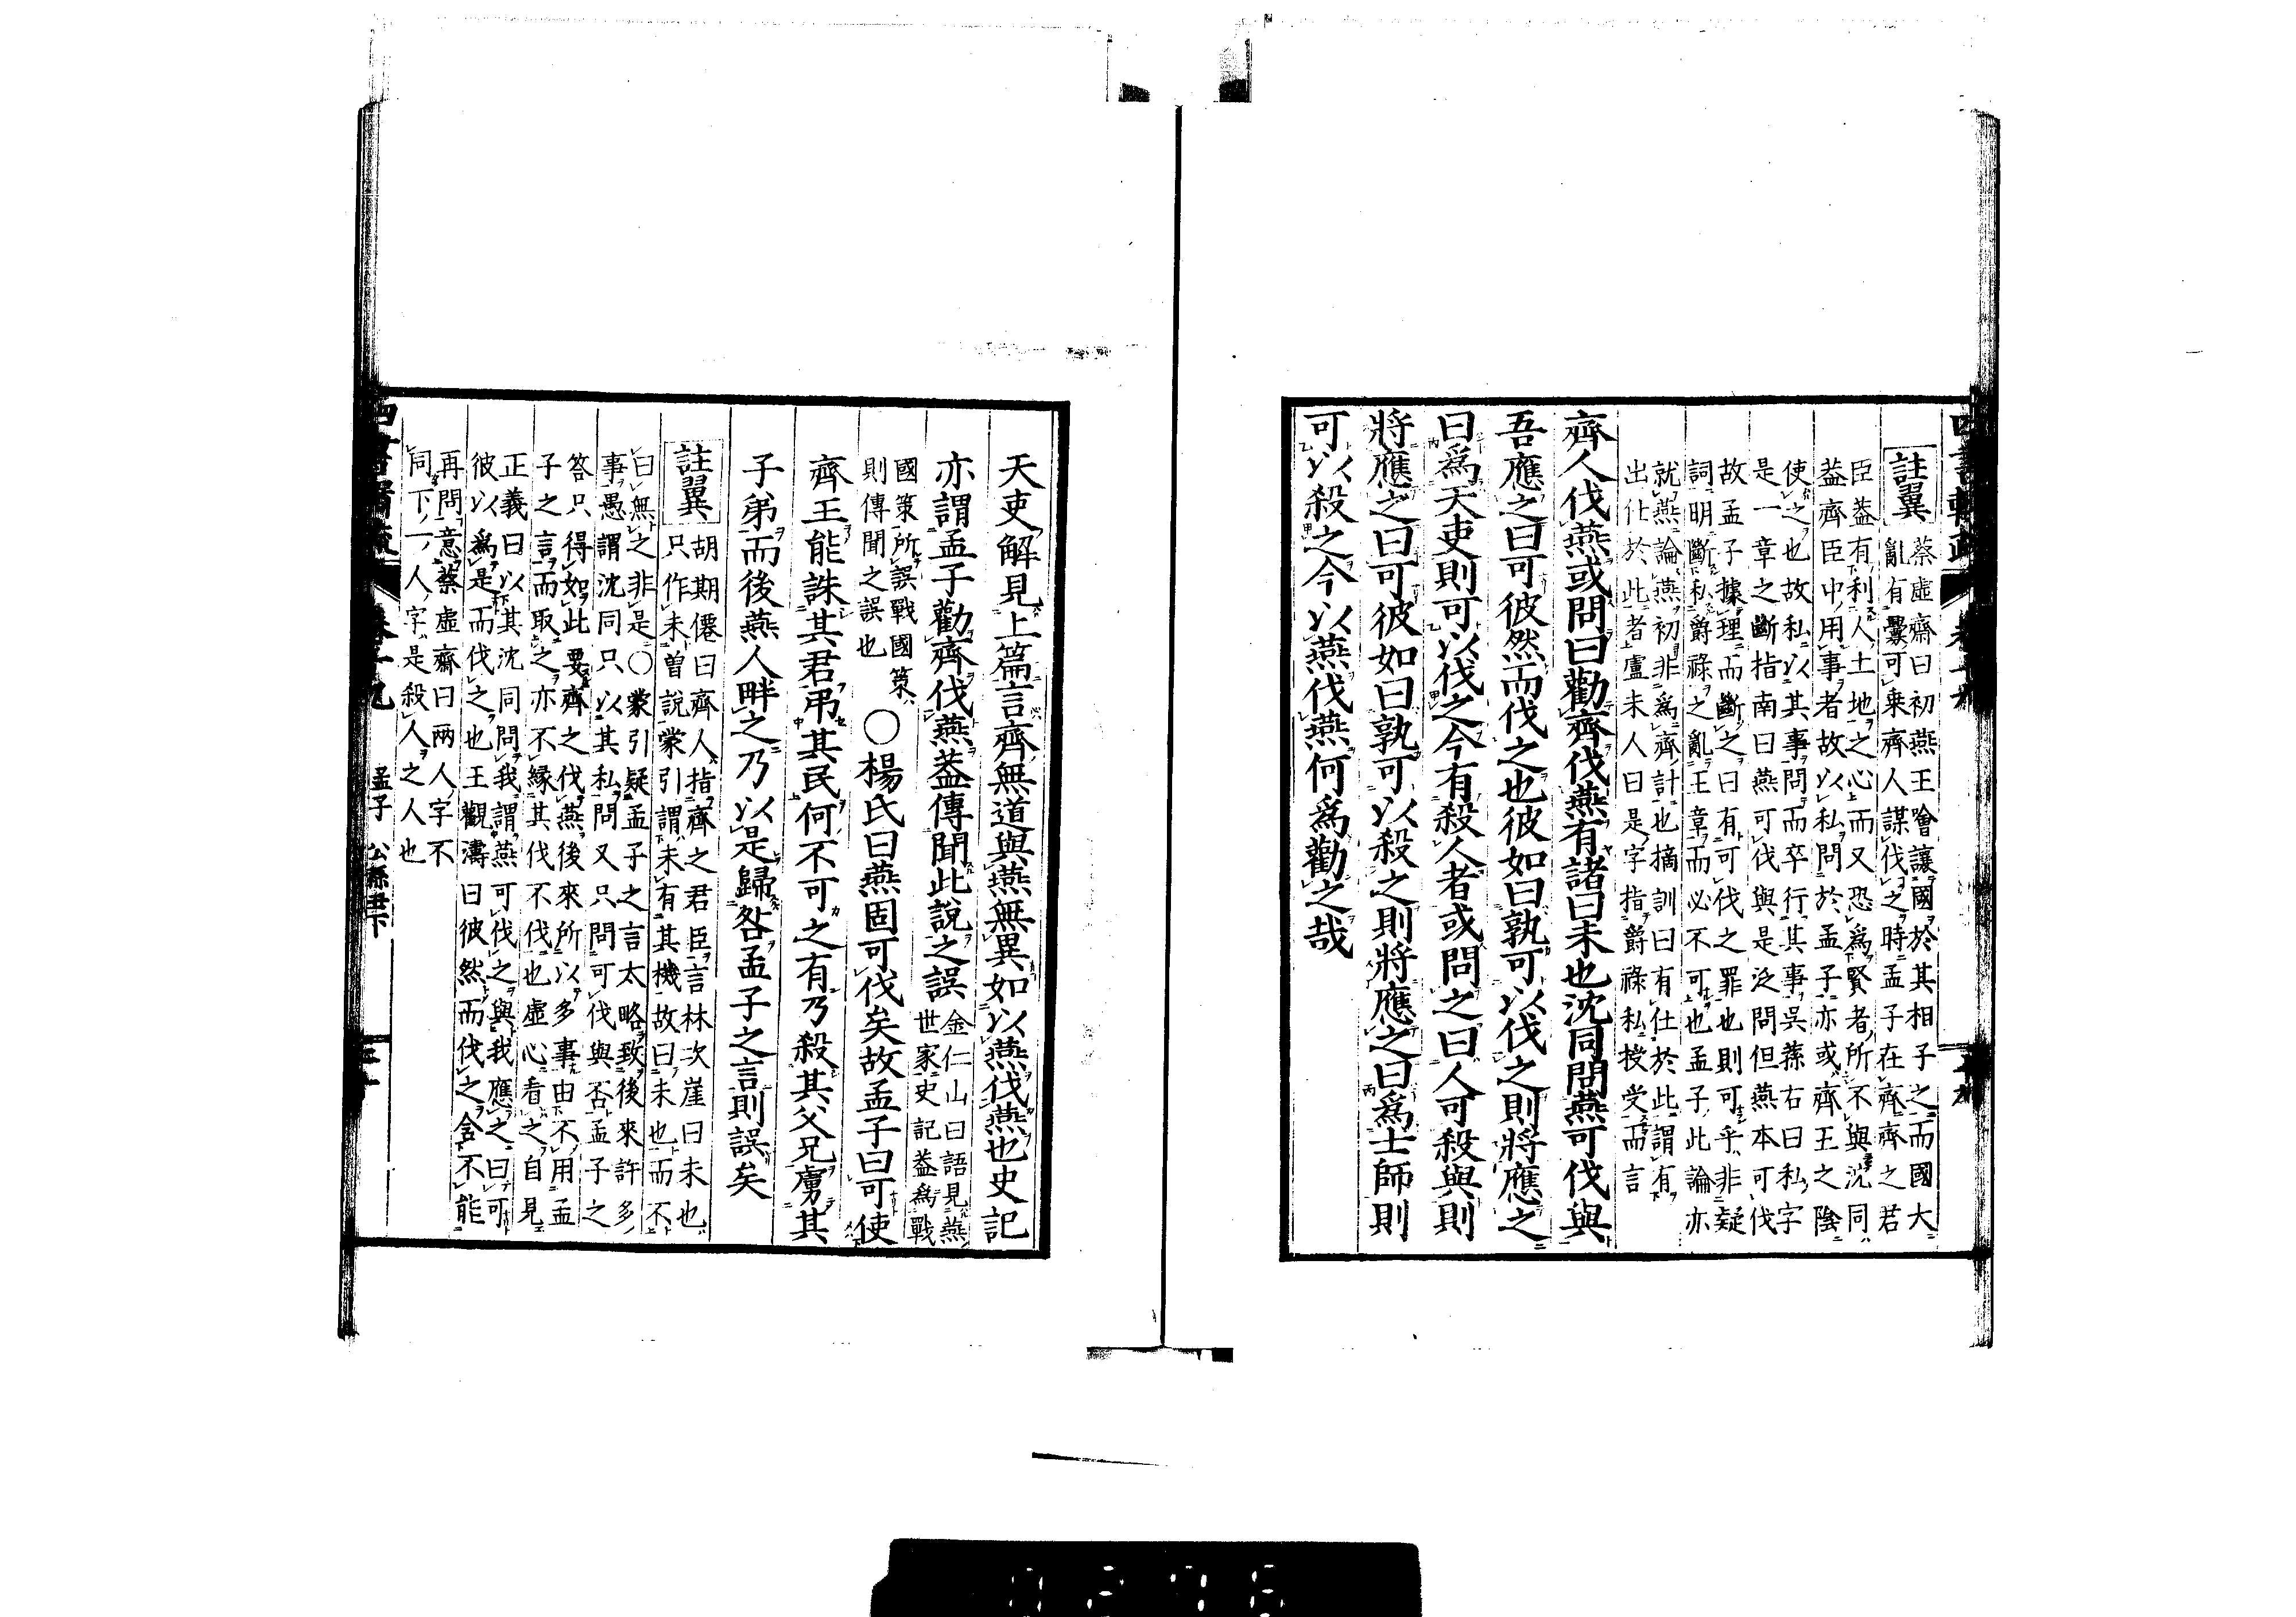 註翼
蔡虛齋曰初燕王噲讓國於其相子之而國大
亂有釁可乗齊人謀伐之時孟子在齊齊之君
臣葢有利人土地之心而又恐爲賢者所不與沈同
葢齊臣中用事者故以私問於孟子亦或齊王之陰
使之也故私以其事問而卒行其事吳蓀右曰私字
是一章之斷指南曰燕可伐與是泛問但燕本可伐
故孟子據理而斷之曰有可伐之罪也則可乎非疑
詞明斷私爵祿之亂王章而必不可也孟子此論亦
就燕論燕初非爲齊計也摘訓曰有仕於此謂有
出仕於此者盧未人曰是字指爵祿私授受而言
齊人伐燕或問曰勸齊伐燕有諸曰未也沈同問燕可伐與
吾應之曰可彼然而伐之也彼如曰孰可以伐之則將應之
曰爲天吏則可以伐之今有殺人者或問之曰人可殺與則
將應之曰可彼如曰孰可以殺之則將應之曰爲士師則
可以殺之今以燕伐燕何爲勸之哉
天吏解見上篇言齊無道與燕無異如以燕伐燕也史記
亦謂孟子勸齊伐燕葢傳聞此說之誤
金仁山曰語見燕
世家史記葢爲戰
國策所誤戰國策
則傳聞之誤也
○楊氏曰燕固可伐矣故孟子曰可使
齊王能誅其君弔其民何不可之有乃殺其父兄虜其
子弟而後燕人畔之乃以是歸咎孟子之言則誤矣
註翼
胡期僊曰齊人指齊之君臣言林次崖曰未也
只作未曾說蒙引謂未有其機故曰未也而不
曰無之非是○蒙引疑孟子之言太略致後來許多
事愚謂沈同只以其私問又只問可伐與否孟子之
答只得如此要齊之伐燕後來所以多事由不用孟
子之言而取之亦不緣其伐不伐也虛心看之自見
正義曰以其沈同問我謂燕可伐之與我應之曰可
彼以爲是而伐之也王觀濤曰彼然而伐之含不能
再問意蔡虛齋曰兩人字不
同下一人字是殺人之人也
孟子
公孫丑下